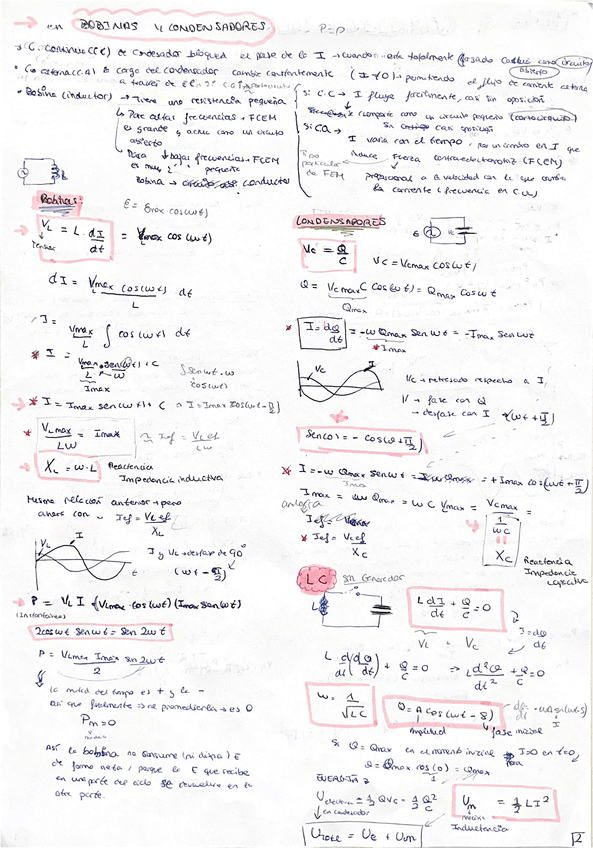 en BOBINAS y CONDENSADORES P=P
• C. continua (C.C) el condesador bloquea el paso de la I → cuando está totalmente cargado actua como circuito abierto
• C. alterna (C.A) la carga del condensador cambia constantemente (I≠0) → permitiendo el flujo de corriente alterna a través de él
• Bobina (inductor) → Tiene una resistencia pequeña
↳ Para altas frecuencias → FCEM es grande y actua como un circuito abierto
↳ Para ↓ bajas frecuencias → FCEM es muy pequeña
Bobina → conductor
Si C.C → I fluye facilmente, casi sin oposición
comporta como un circuito pequeño (cortocircuito)
Si CA →
I varia con el tiempo, por un cambio en I que
induce Fuerza contraelectromotriz (FCEM)
Tipo particular de FEM
proporcional a la velocidad con la que cambia
la corriente (frecuencia en C.A)
Bobinas
ε = εmax·cos(ωt)
V_L = L · dI/dt = V_Lmax cos(ωt)
dI = V_Lmax cos(ωt)/L dt
I = V_Lmax/L ∫ cos(ωt) dt
* I = V_Lmax·sen(ωt)/L·ω + C
Imax
∫sen ωt·ω
cos(ωt)
* I = Imax sen(ωt) + C ∧ I = Imax cos(ωt - π/2)
* V_Lmax/Lω = Imax ≃ Ief = V_Lef/Lω
X_L = ω·L Reactancia
Impedencia inductiva
Misma relación anterior → pero
ahora con ω Ief = V_Lef/X_L
V_L I
t
I y V_L → desfase de 90°
(ωt - π/2)
P = V_L I = (V_Lmax·cos(ωt))(Imax sen ωt)
(Instantanea)
2cos ωt sen ωt = sen 2ωt
P = V_Lmax Imax sen 2ωt/2
La mitad del tiempo es + y la -
Así que finalmente → se promedia → es 0
Pm = 0
media
Así la bobina no consume (ni disipa) E
de forma neta, porque la E que recibe
en una parte del ciclo se devuelve en la
otra parte.
CONDENSADORES
ε Vc
Vc = Q/C
Vc = Vcmax cos(ωt)
Q = Vcmax C cos(ωt) = Qmax cos ωt
Qmax
* I = dQ/dt = -ω Qmax sen ωt = -Imax sen ωt
* Imax
Vc I
Vc → retrasado respecto a I
V → fase con Q
→ desfase con I (ωt + π/2)
sen(ωt) = - cos(ωt + π/2)
* I = -ω Qmax sen ωt = = +Imax cos(ωt + π/2)
Imax
Imax = ω Qmax = ω C Vmax = Vcmax / 1/ωC
analogía
* Ief = Vcef/Xc
Xc
Reactancia
Impedencia
capacitiva
LC sin Generador
L dI/dt + Q/C = 0
V_L + Vc
I = dQ/dt
L d/dt(dQ/dt) + Q/C = 0 ⇒ L d²Q/dt² + Q/C = 0
ω = 1/√LC
Q = A cos(ωt - δ)
dQ/dt = -ωA sen(ωt-δ)
Amplitud fase inicial
Si Q = Qmax en el momento inicial I=0 en t=0
Q = Qmax cos(0) = Qmax
ENERGÍA
U electrica = 1/2 QVc = 1/2 Q²/C
↓ en condensador
Um = 1/2 LI²
Inductancia
Utotal = Ue + Um
2